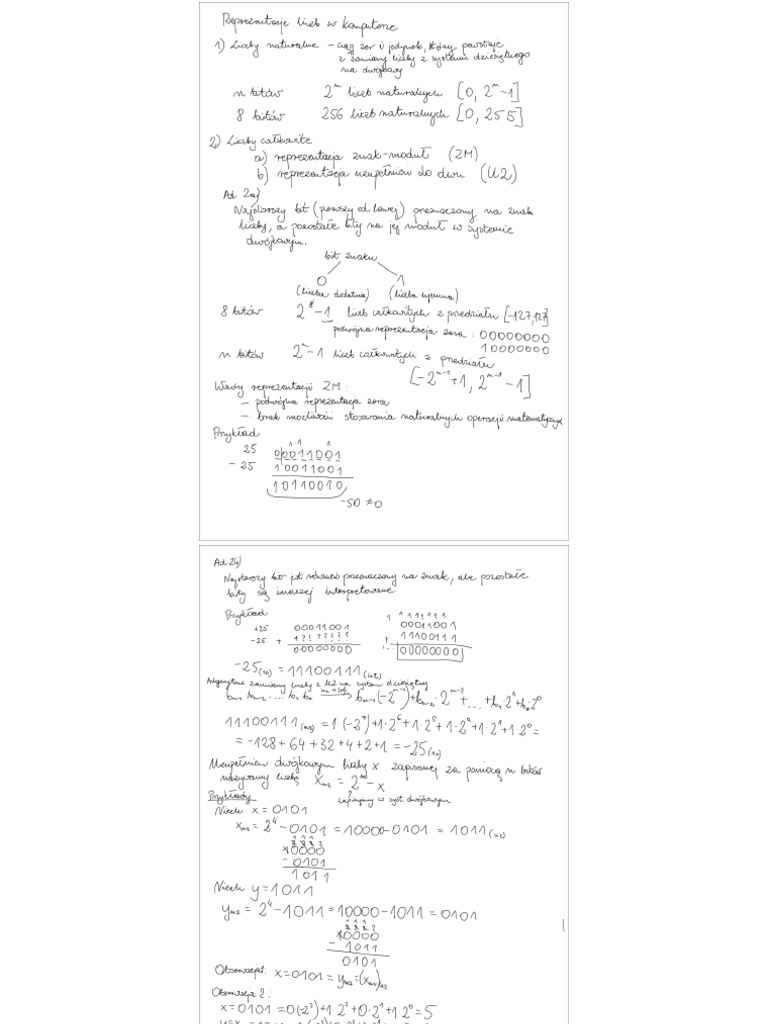 Reprezentacje liczb w komputerze
1) Liczby naturalne - ciąg zer i jedynek, który powstaje
z zamiany liczby z systemu dziesiętnego
na dwójkowy
n bitów 2^n liczb naturalnych [0, 2^n-1]
8 bitów 256 liczb naturalnych [0, 255]
2) Liczby całkowite
a) reprezentacja znak-moduł (ZM)
b) reprezentacja uzupełnień do dwu (U2)
Ad 2a)
Najstarszy bit (pierwszy od lewej) przeznaczony na znak
liczby, a pozostałe bity na jej moduł w systemie
dwójkowym.
bit znaku
0 1
(liczba dodatnia) (liczba ujemna)
8 bitów 2^8-1 liczb całkowitych z przedziału [-127,127]
podwójna reprezentacja zera : 00000000
10000000
n bitów 2^n-1 liczb całkowitych z przedziału
[-2^{n-1}+1, 2^{n-1}-1]
Wady reprezentacji ZM:
- podwójna reprezentacja zera
- brak możliwości stosowania naturalnych operacji matematycznych
Przykład
25 00011001
-25 10011001
10110010
-50 ≠ 0
Ad 2b)
Najstarszy bit jest również przeznaczony na znak, ale pozostałe
bity są inaczej interpretowane.
Przykład
+25 00011001 00011001
-25 + 1??????? + 11100111
00000000 00000000
-25(10) = 11100111(U2)
Algorytm zamiany liczby z U2 na system dziesiętny
11100111(U2) = 1·(-2^7)+1·2^6+1·2^5+1·2^2+1·2^1+1·2^0=
= -128+64+32+4+2+1 = -25(10)
Uzupełnieniem dwójkowym liczby x zapisanej za pomocą n bitów
nazywamy liczbę x_{U2} = 2^n - x
zapisujemy w syst. dwójkowym
Przykłady
Niech x=0101
x_{U2} = 2^4-0101=10000-0101=1011(U2)
10000
- 0101
1011
Niech y=1011
y_{U2}=2^4-1011=10000-1011=0101
10000
- 1011
0101
Obserwacja 1: x=0101=y_{U2}=(x_{U2})_{U2}
Obserwacja 2:
x=0101=0(-2^3)+1·2^2+0·2^1+1·2^0=5